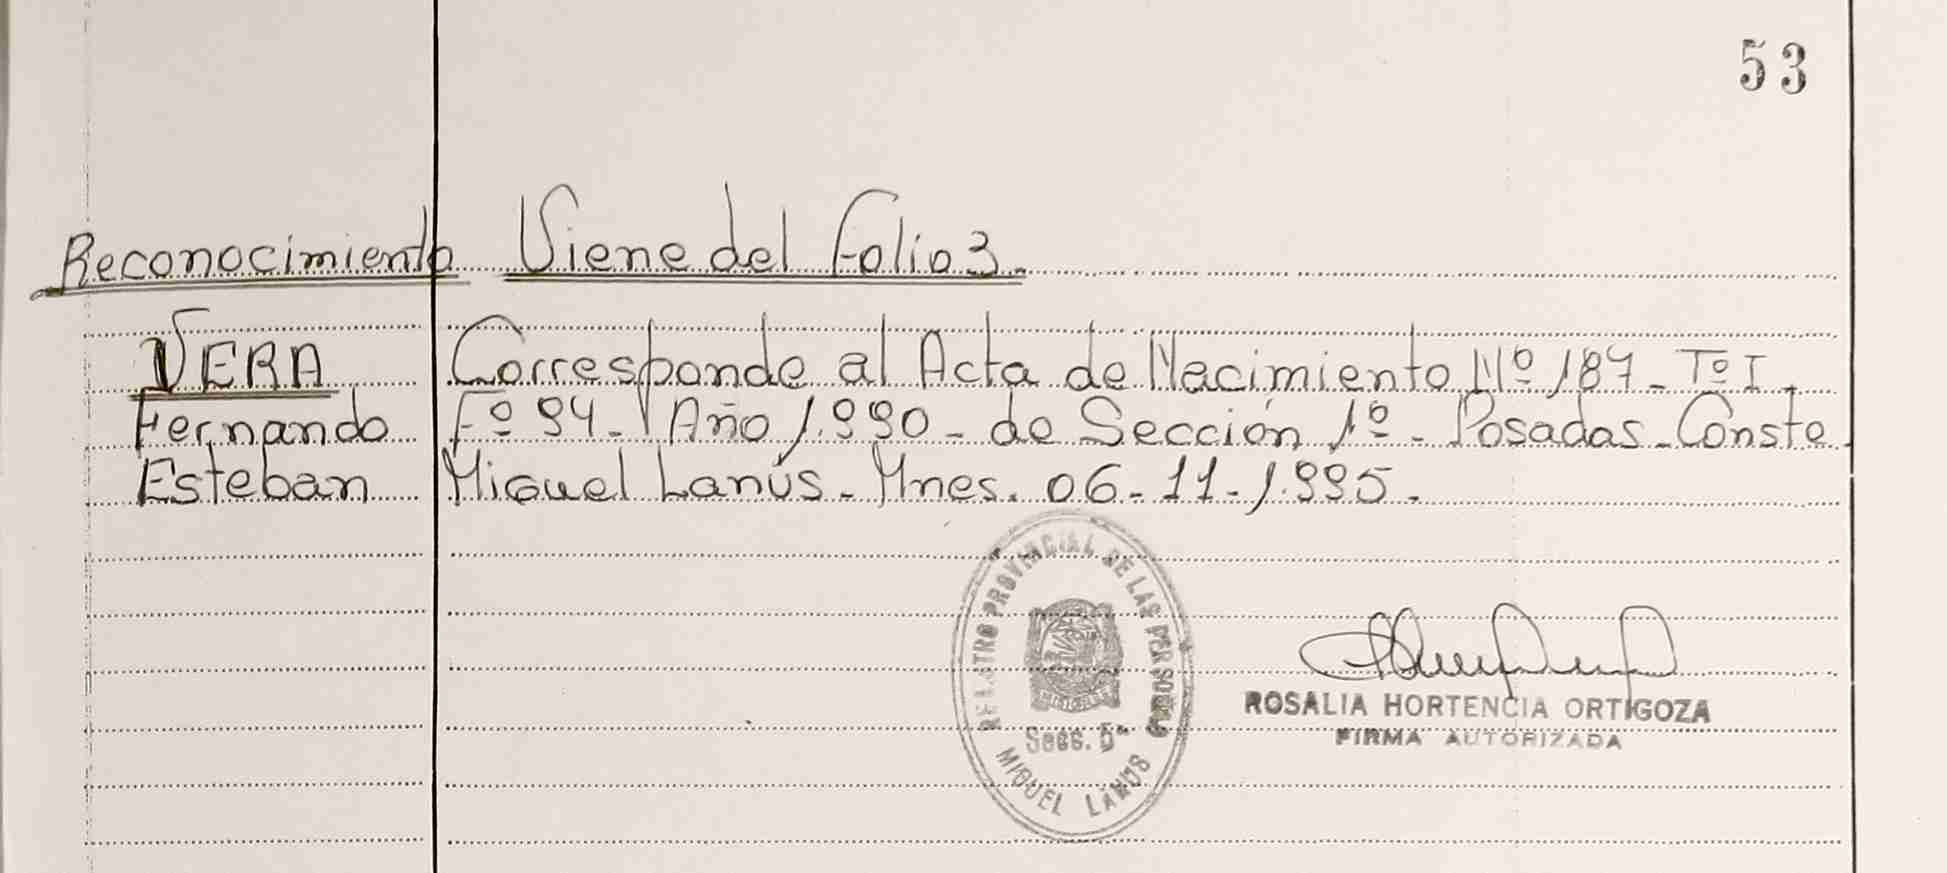 53
Reconocimiento Viene del Folio 3.
VERA Corresponde al Acta de Nacimiento Nº 187 - Tº I.
Fernando Fº 94 - Año 1.990 - de Sección 1º - Posadas - Conste
Esteban Miguel Lanús - Mnes. 06 - 11 - 1.995.
REGISTRO PROVINCIAL DE LAS PERSONAS
MISIONES
Secc. 5ª
MIGUEL LANUS
ROSALIA HORTENCIA ORTIGOZA
FIRMA AUTORIZADA